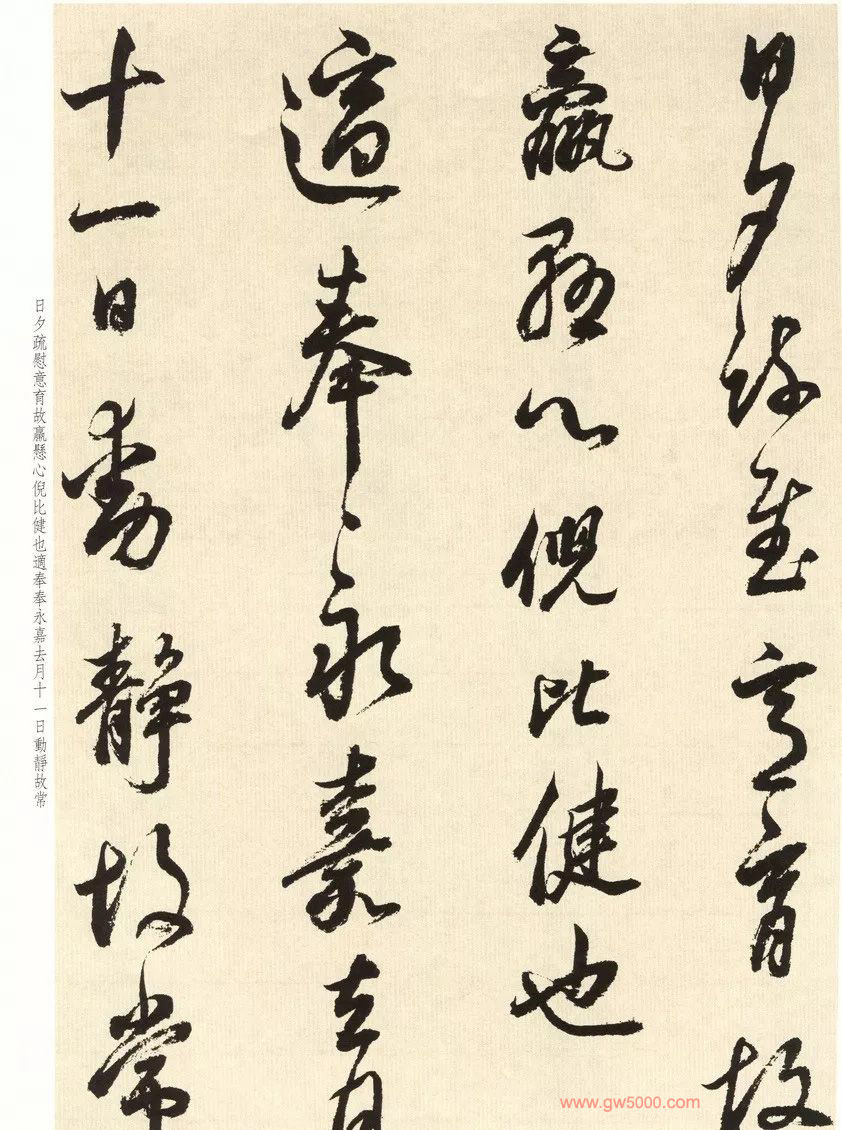 日夕疏慰意育故
羸懸心倪比健也
適奉々永嘉去月
十一日動靜故常
日夕疏慰意育故羸懸心倪比健也適奉奉永嘉去月十一日動靜故常
www.gw5000.com